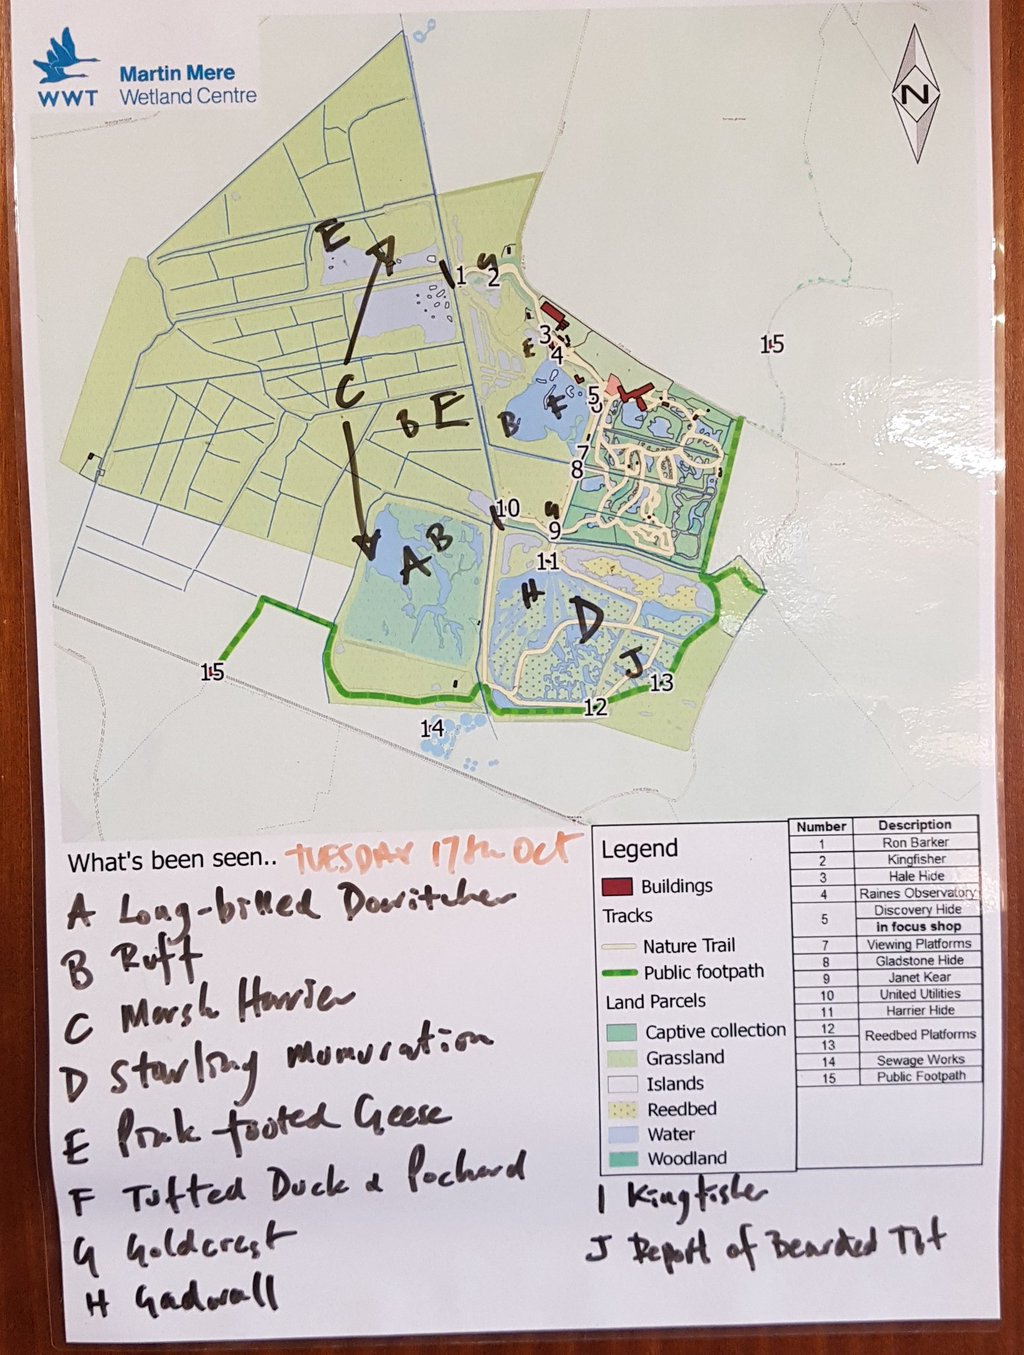 WWT
Martin Mere
Wetland Centre
N
E
1
G
2
3
E
4
15
5
6
C
B E
B
F
7
8
10
G
9
A B
11
H
D
J
15
13
12
14
What's been seen.. TUESDAY 17th Oct
A Long-billed Dowitcher
B Ruff
C Marsh Harrier
D Starling murmuration
E Pink footed Geese
F Tufted Duck & Pochard
G Goldcrest
H Gadwall
Legend
Buildings
Tracks
Nature Trail
Public footpath
Land Parcels
Captive collection
Grassland
Islands
Reedbed
Water
Woodland
Number Description
1 Ron Barker
2 Kingfisher
3 Hale Hide
4 Raines Observatory
5 Discovery Hide
in focus shop
7 Viewing Platforms
8 Gladstone Hide
9 Janet Kear
10 United Utilities
11 Harrier Hide
12 Reedbed Platforms
13
14 Sewage Works
15 Public Footpath
I Kingfisher
J Report of Bearded Tit